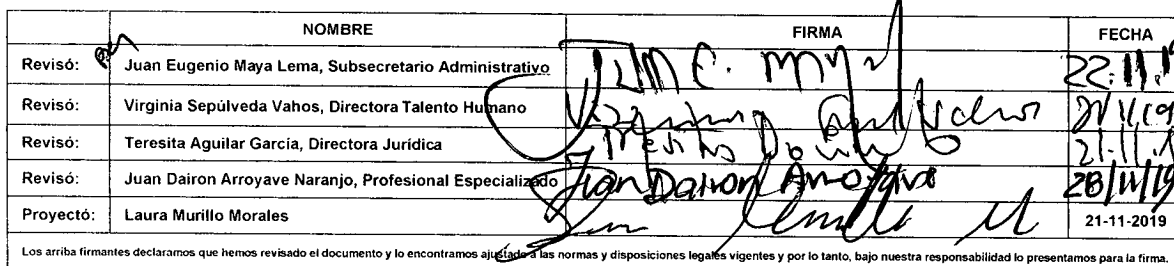 NOMBRE FIRMA FECHA
Revisó: Juan Eugenio Maya Lema, Subsecretario Administrativo 22.11.
Revisó: Virginia Sepúlveda Vahos, Directora Talento Humano
Revisó: Teresita Aguilar García, Directora Jurídica 21.11.
Revisó: Juan Dairon Arroyave Naranjo, Profesional Especializado Juan Dairon Arroyave 28/11/19
Proyectó: Laura Murillo Morales 21-11-2019
Los arriba firmantes declaramos que hemos revisado el documento y lo encontramos ajustado a las normas y disposiciones legales vigentes y por lo tanto, bajo nuestra responsabilidad lo presentamos para la firma.